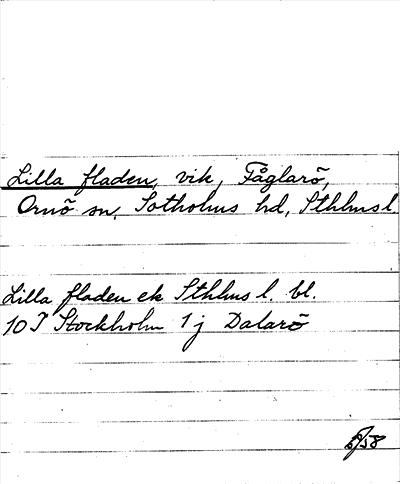 Lilla fladen, vik, Fåglarö,
Ornö sn, Sotholms hd, Sthlms l.
Lilla fladen ek Sthlms l. bl.
10 I Stockholm 1 j Dalarö